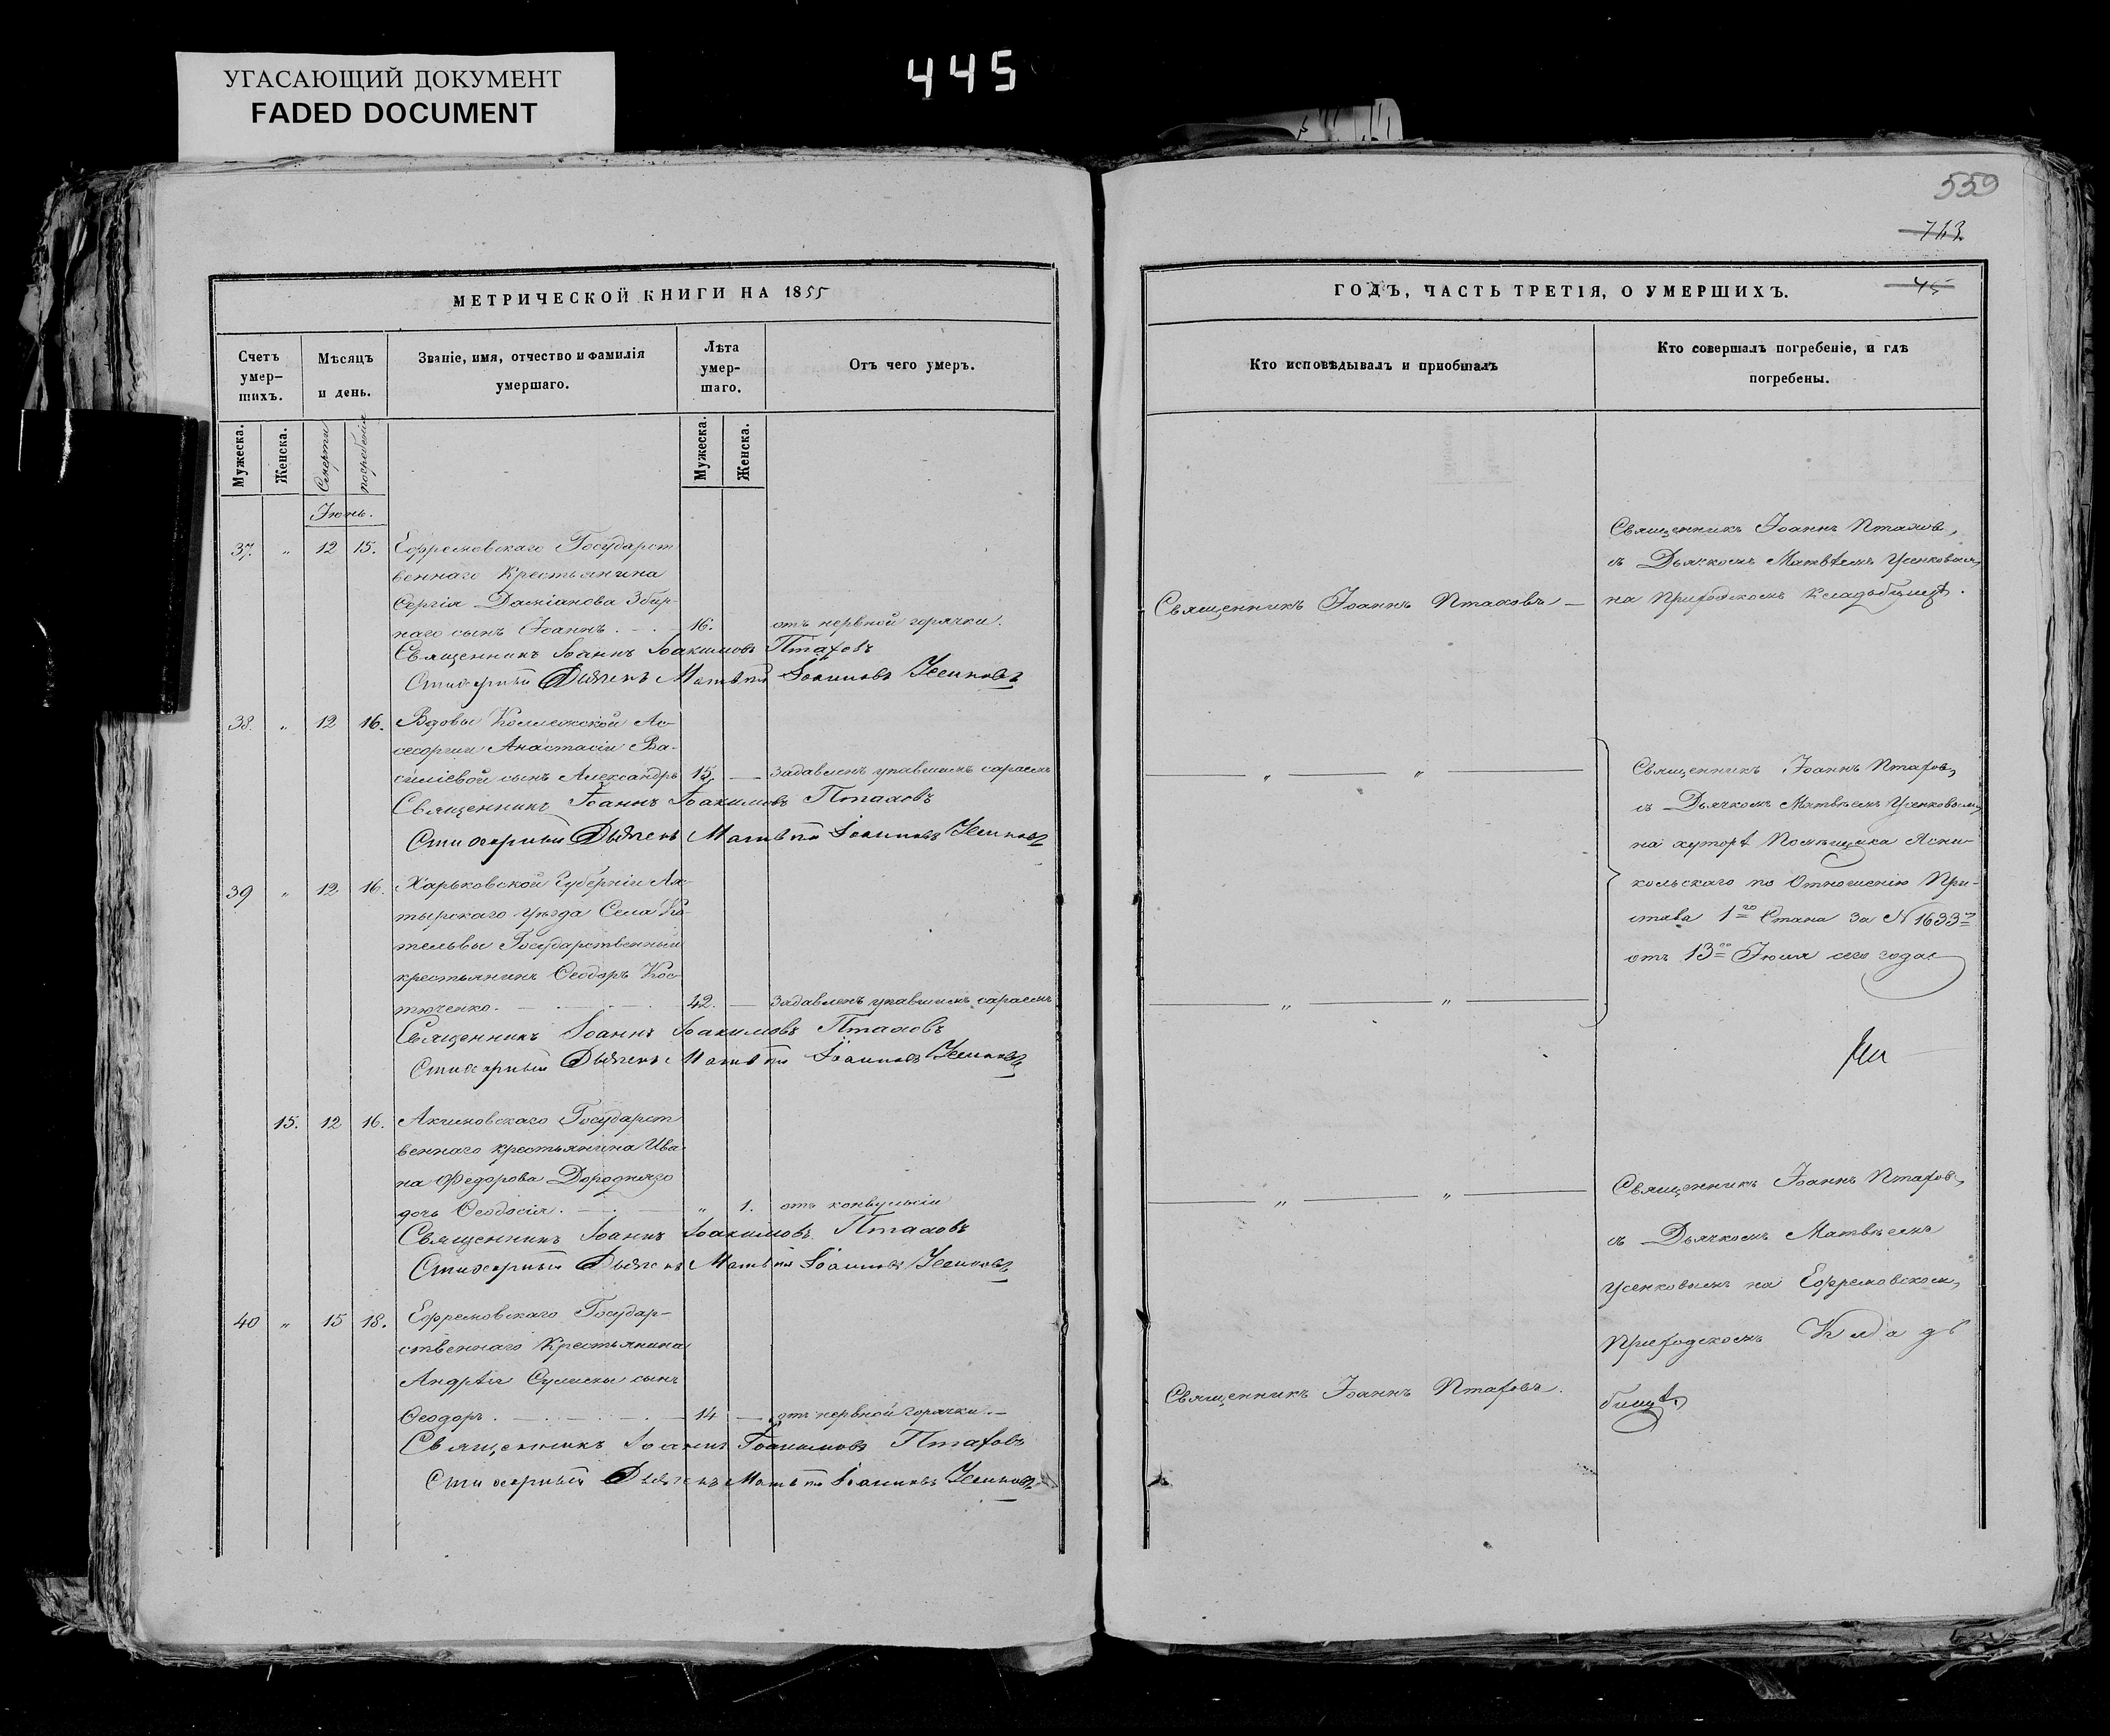 УГАСАЮЩИЙ ДОКУМЕНТ
FADED DOCUMENT
445
МЕТРИЧЕСКОЙ КНИГИ НА 1855
Счетъ умер-шихъ.
Мѣсяцъ и день.
Званіе, имя, отчество и фамилія умершаго.
Лѣта умер-шаго.
Отъ чего умеръ.
Мужеска.
Женска.
Смерти
погребенія
Мужеска.
Женска.
Июнь.
37. „ 12 15. Ефремовскаго Государст
веннаго Крестьянина
Сергія Даміанова Збир-
наго сынъ Іоаннъ. 16. отъ нервной горячки.
Священникъ Іоаннъ Іоакимовъ Птаховъ
Стихарный Дьячекъ Матвѣй Іоанновъ Усенковъ
38. „ 12 16. Вдовы Коллежской Ас-
сесорши Анастасіи Ва-
силіевой сынъ Александръ 15. — задавленъ упавшимъ сараемъ
Священникъ Іоаннъ Іоакимовъ Птаховъ
Стихарный Дьячекъ Матвѣй Іоанновъ Усенковъ
39 „ 12 16. Харьковской Губерніи Ах-
тырскаго уѣзда Села Ко-
тельвы Государственный
крестьянинъ Ѳеодоръ Кос-
тюченко. 42. — задавленъ упавшимъ сараемъ
Священникъ Іоаннъ Іоакимовъ Птаховъ
Стихарный Дьячекъ Матвѣй Іоанновъ Усенковъ
15. 12 16. Акимовскаго Государст
веннаго крестьянина Ива-
на Федорова Дородняго
дочь Ѳеодосія. „ 1. отъ конвульсіи
Священникъ Іоаннъ Іоакимовъ Птаховъ
Стихарный Дьячекъ Матвѣй Іоанновъ Усенковъ
40 „ 15 18. Ефремовскаго Государ-
ственнаго Крестьянина
Андрѣя Сулимы сынъ
Ѳеодоръ. 14 — отъ нервной горячки. —
Священникъ Іоаннъ Іоакимовъ Птаховъ
Стихарный Дьячекъ Матвѣй Іоанновъ Усенковъ
559
713
45
ГОДЪ, ЧАСТЬ ТРЕТІЯ, О УМЕРШИХЪ.
Кто исповѣдывалъ и пріобщалъ
Кто совершалъ погребеніе, и гдѣ погребены.
Священникъ Іоаннъ Птаховъ —
Священникъ Іоаннъ Птаховъ,
съ Дьячкомъ Матвѣемъ Усенковымъ,
на приходскомъ кладбищѣ.
— „ — „ —
Священникъ Іоаннъ Птаховъ,
съ Дьячкомъ Матвѣемъ Усенковымъ,
на хуторѣ Помѣщика Ясни-
кольскаго по Отношенію При-
става 1го Стана за N 1633м
отъ 13го Июня сего года
— „ — „ —
— „ — „ —
Священникъ Іоаннъ Птаховъ,
съ Дьячкомъ Матвѣемъ
Усенковымъ на Ефремовскомъ,
Приходскомъ Кладъ
бищѣ,
Священникъ Іоаннъ Птаховъ.